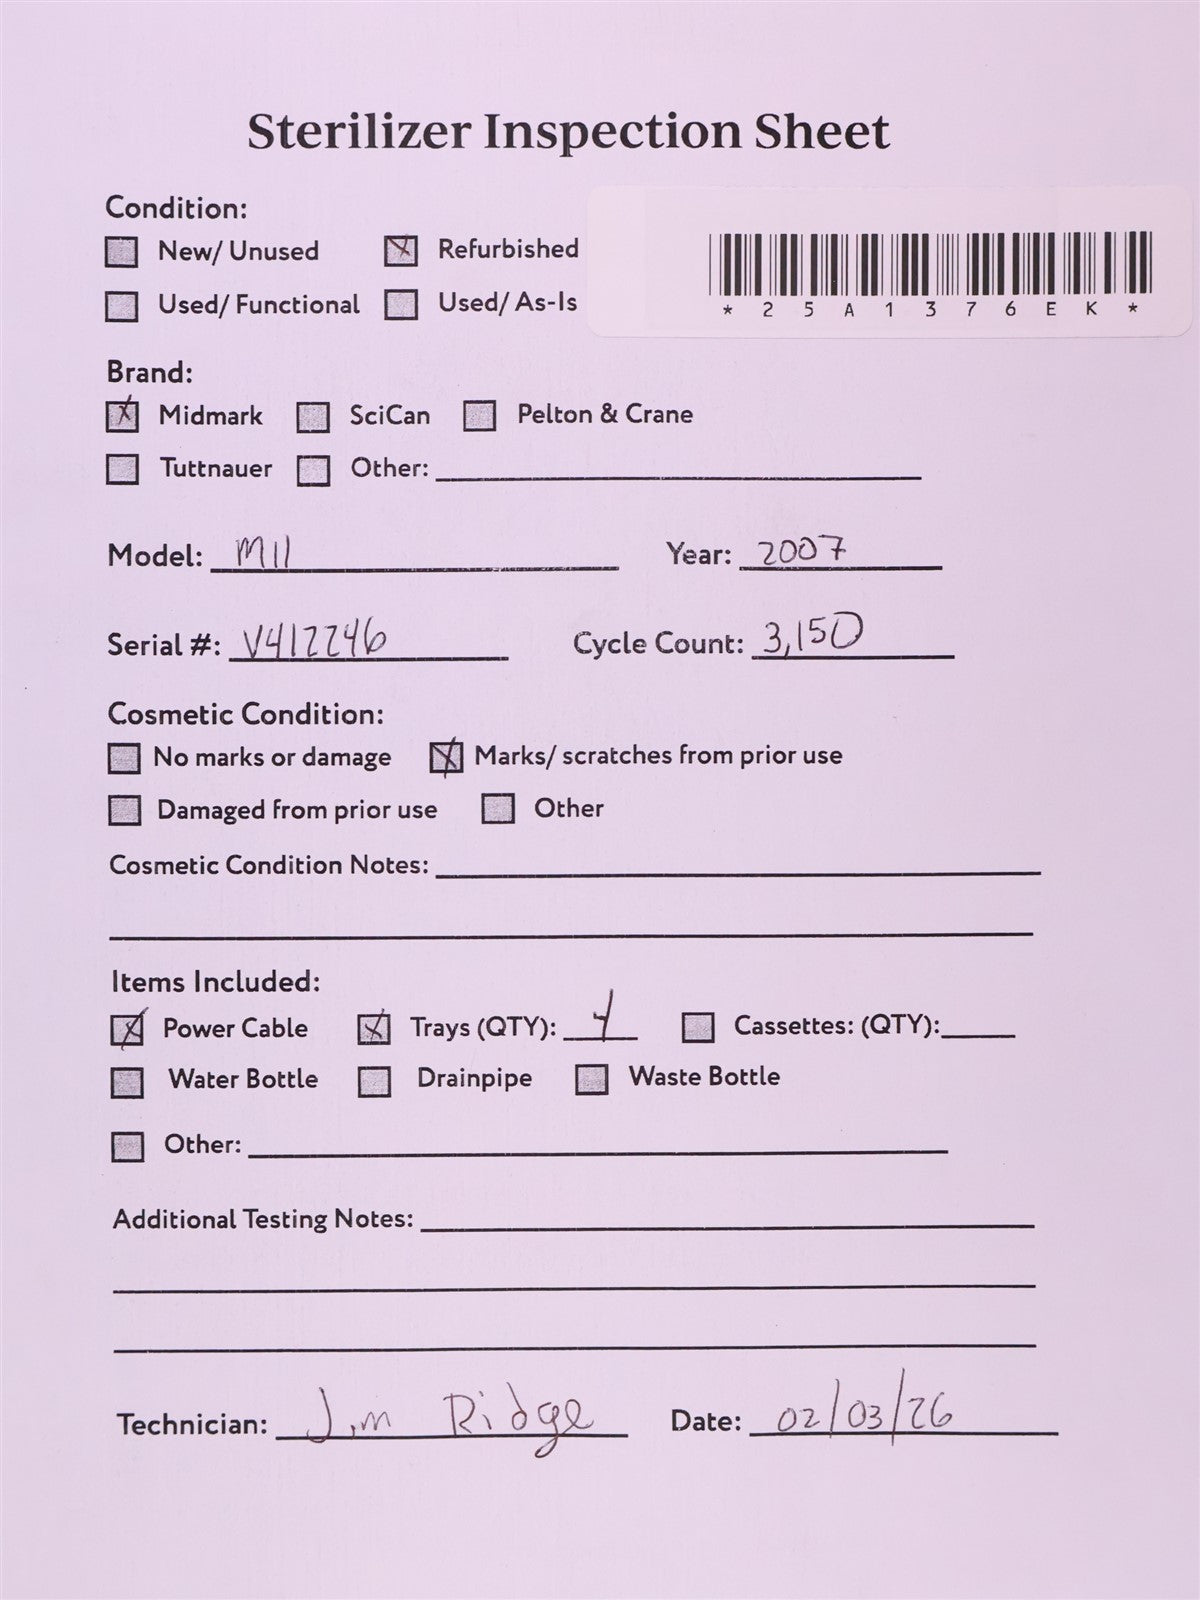 Sterilizer Inspection Sheet
Condition:
New/ Unused Refurbished
Used/ Functional Used/ As-Is
* 2 5 A 1 3 7 6 E K *
Brand:
Midmark SciCan Pelton & Crane
Tuttnauer Other:
Model: M11 Year: 2007
Serial #: V412246 Cycle Count: 3,150
Cosmetic Condition:
No marks or damage Marks/ scratches from prior use
Damaged from prior use Other
Cosmetic Condition Notes:
Items Included:
Power Cable Trays (QTY): 4 Cassettes: (QTY):
Water Bottle Drainpipe Waste Bottle
Other:
Additional Testing Notes:
Technician: Jim Ridge Date: 02/03/26